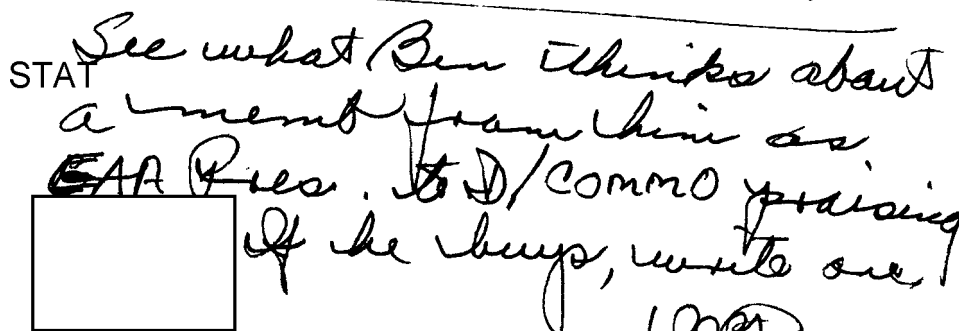 STAT
See what Ben thinks about
a memo from him as
EAA Pres. to D/COMMO praising
If he buys, write one.